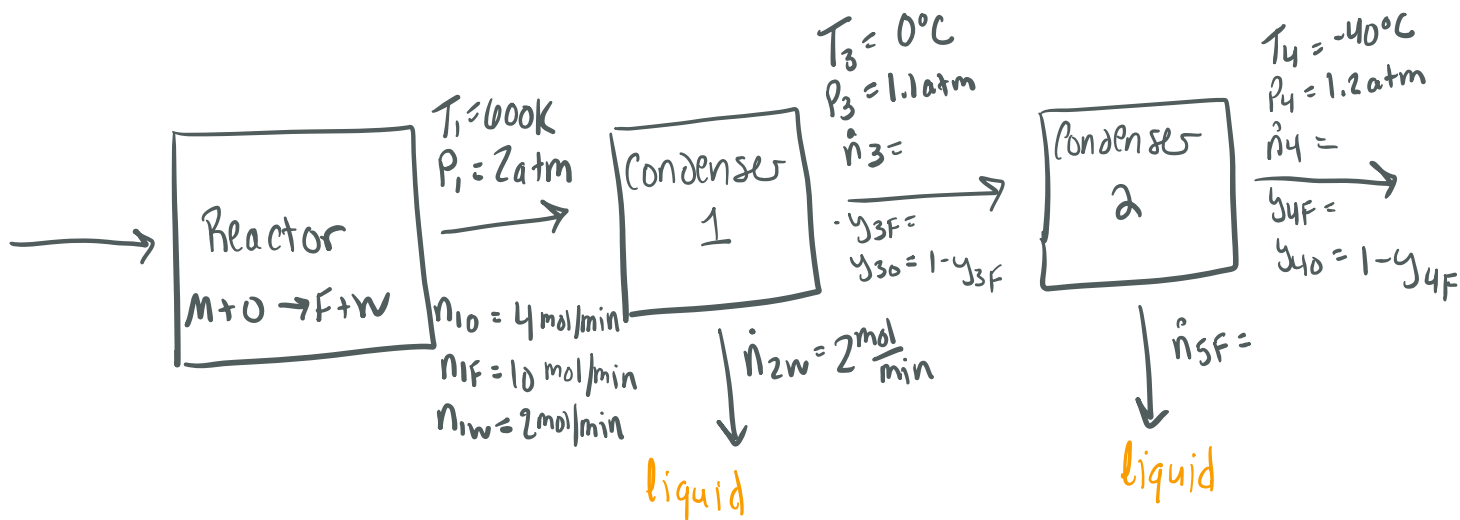 Reactor
M+O → F+W
T₁=600K
P₁=2atm
n₁₀ = 4 mol/min
n₁F = 10 mol/min
n₁w = 2 mol/min
Condenser
1
ṅ₂w = 2 mol/min
liquid
T₃ = 0°C
P₃ = 1.1atm
ṅ₃ =
y₃F =
y₃₀ = 1-y₃F
Condenser
2
ṅ₅F =
liquid
T₄ = -40°C
P₄ = 1.2atm
ṅ₄ =
y₄F =
y₄₀ = 1-y₄F